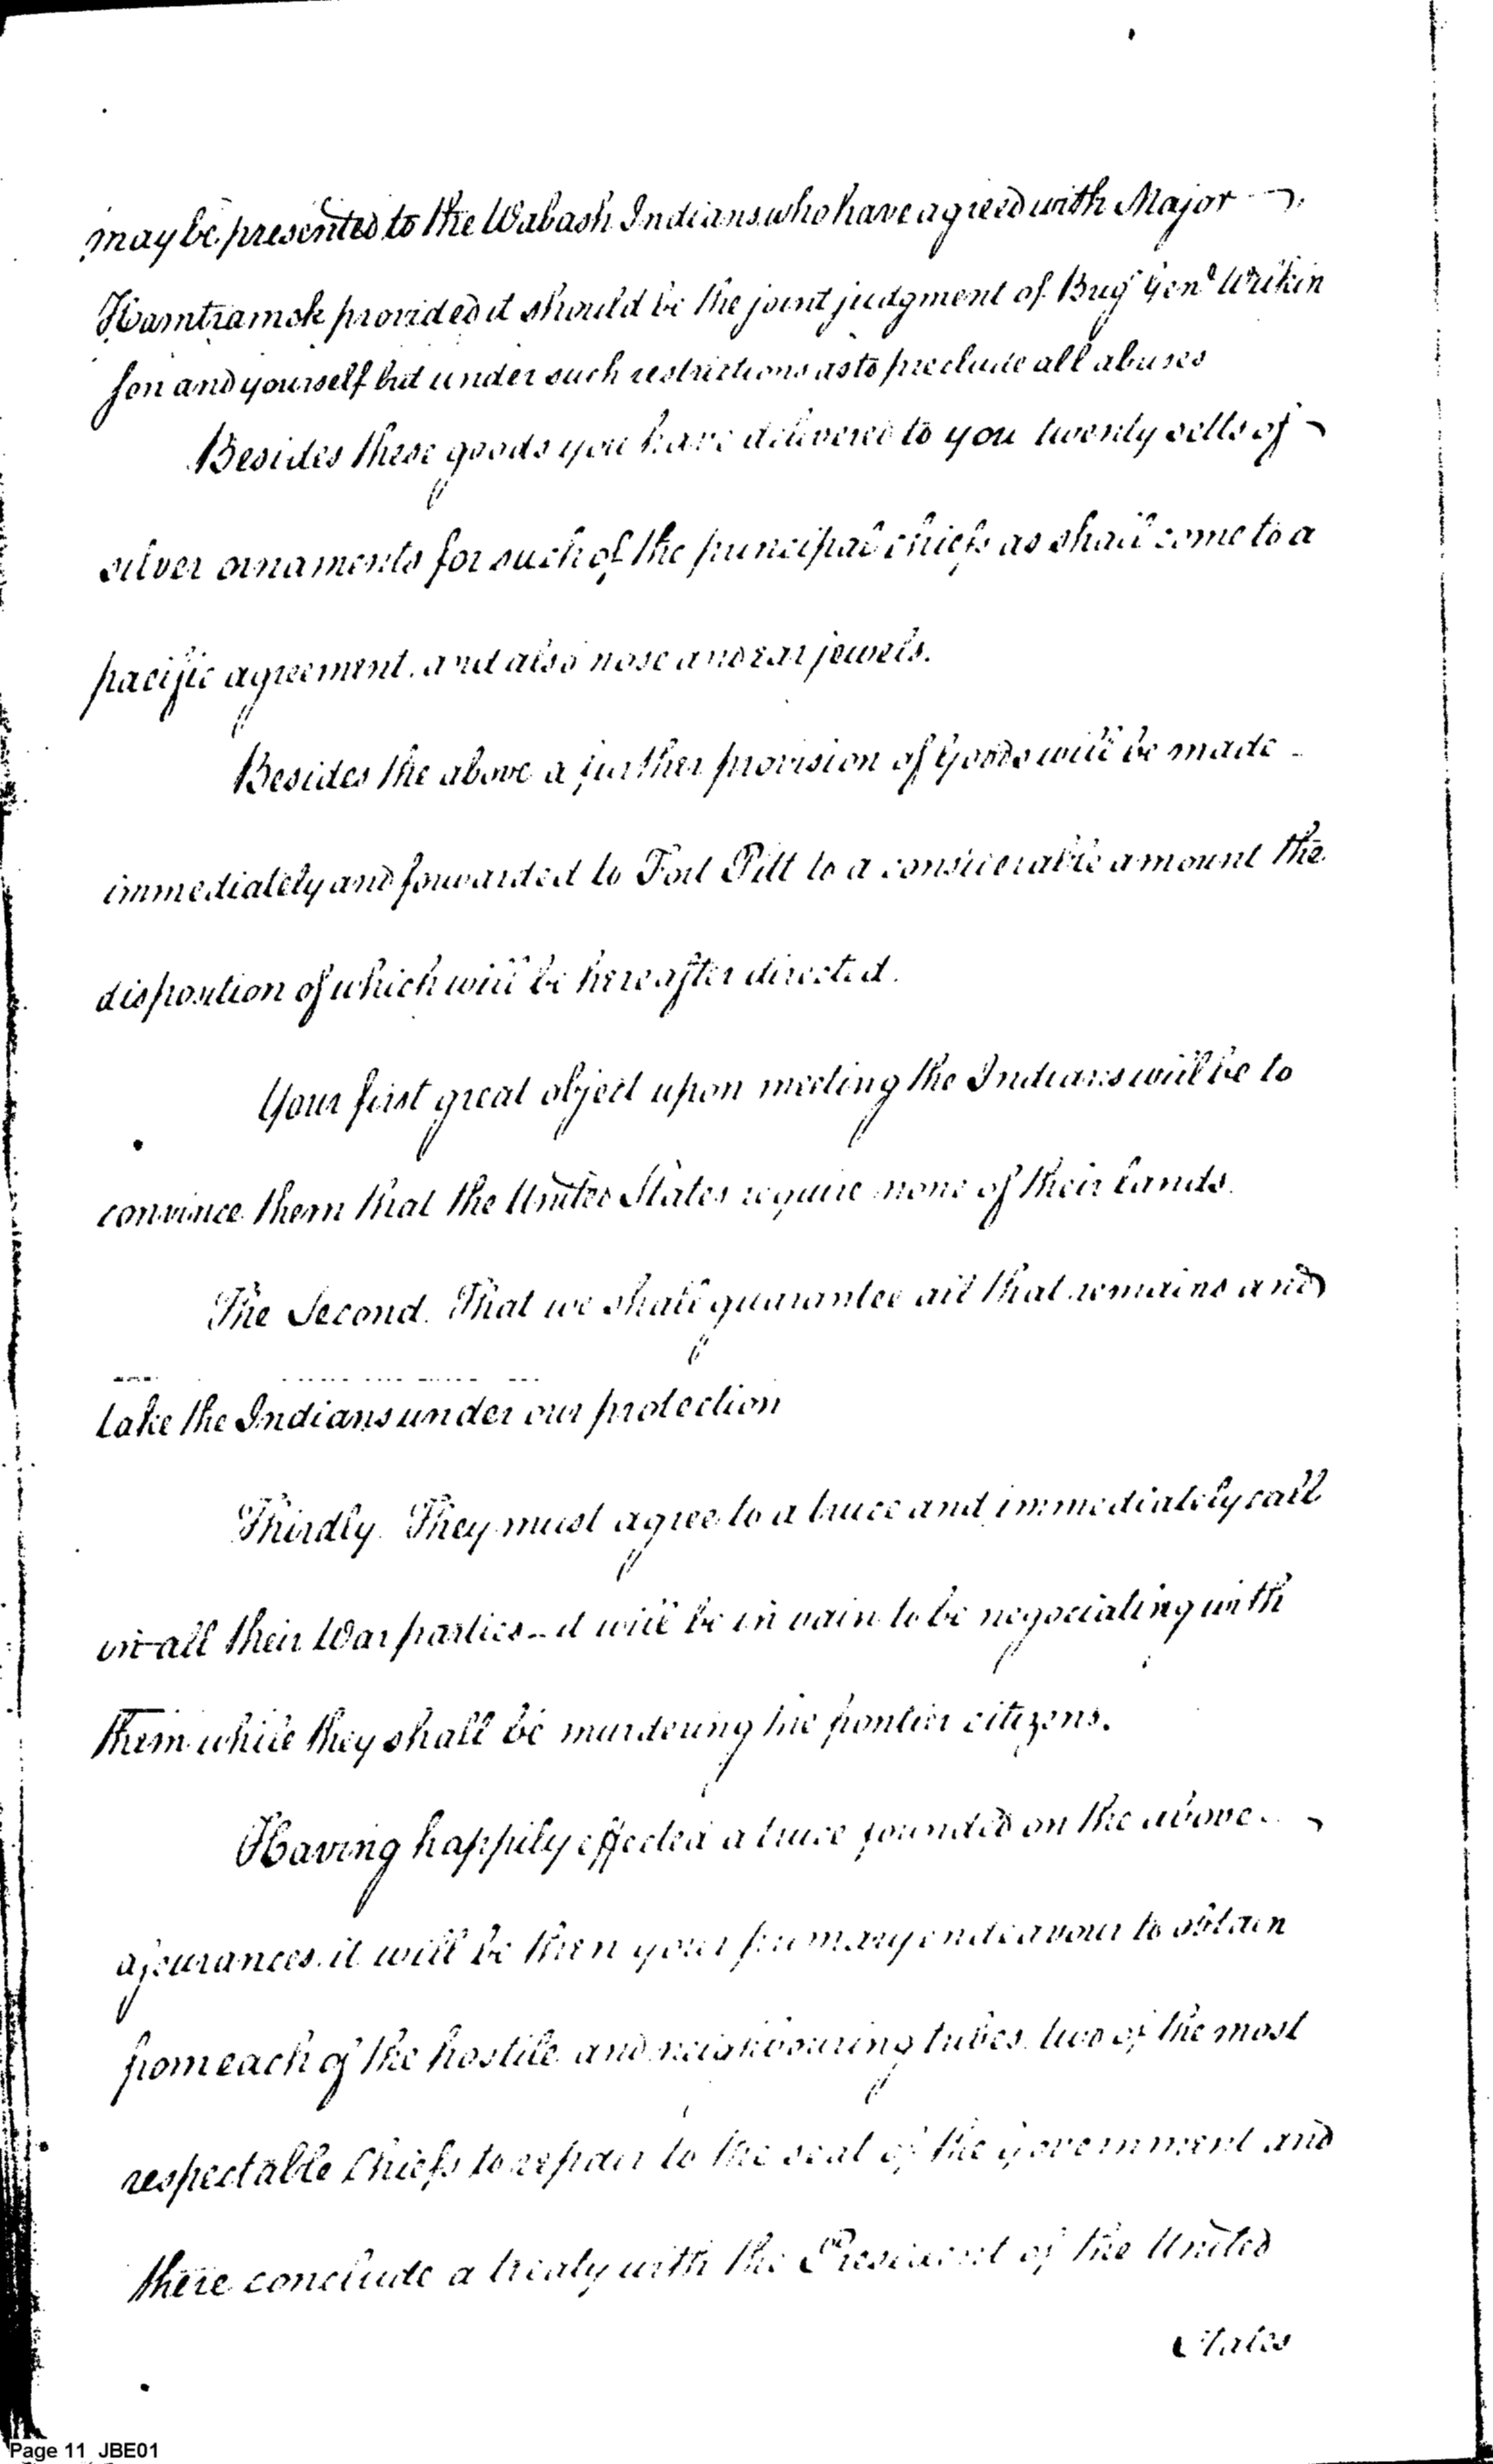 may be presented to the Wabash Indians who have agreed with Major
Hamtramck provided it should be the joint judgment of Brig Genl Wilkin
son and yourself but under such restrictions as to preclude all abuses
Besides these goods you have delivered to you twenty setts of
silver ornaments for such of the principal chiefs as shall come to a
pacific agreement. and also nose and ear jewels.
Besides the above a further provision of Goods will be made
immediately and forwarded to Fort Pitt to a considerable amount the
disposition of which will be hereafter directed.
Your first great object upon meeting the Indians will be to
convince them that the United States require none of their lands.
The Second. That we shall guarantee all that remains and
take the Indians under our protection
Thirdly. They must agree to a truce and immediately call
in all their War parties - it will be in vain to be negociating with
them while they shall be murdering the frontier citizens.
Having happily effected a truce founded on the above
assurances. it will be then your primary endeavour to obtain
from each of the hostile and neighbouring tribes two of the most
respectable Chiefs to repair to the seat of the government and
there conclude a treaty with the President of the United
States
Page 11 JBE01